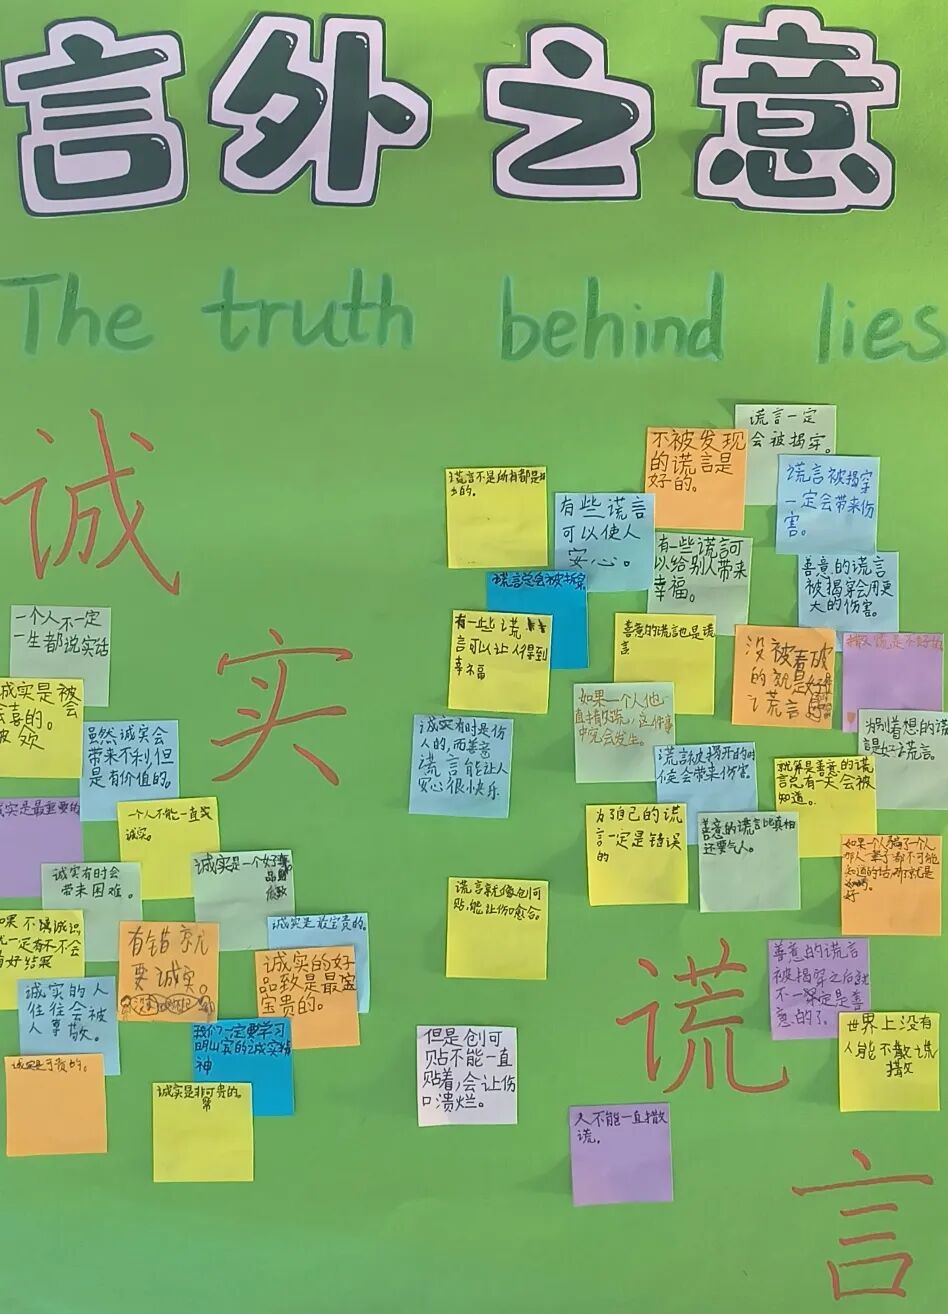 言外之意
The truth behind lies
诚
实
一个人不一定
一生都说实话
诚实是被
喜的。会
被欢
虽然诚实会
带来不利,但
是有价值的。
诚实是最重要的
一个人不能一直
诚实。
诚实有时会
带来困难。
诚实是一个好
如果不诚
就一定有不会
有好结果
有错就
要诚实。
诚实是最宝贵的。
诚实的好
品致是最宝
宝贵的。
诚实的人
往往会被
人尊敬。
我们一定要学习
的诚实精
神
诚实是可贵的。
诚实是非可贵的。
常
谎言一定
会被揭穿。
不被发现
的谎言是
好的。
谎言不是所有都是
的。
谎言被揭穿
一定会带来伤
害。
有些谎言
可以使人
安心。
有一些谎言可
以给别人带来
幸福。
善意的谎言
被揭穿会用更
大的伤害。
谎言总会被拆穿
有一些谎
言可以让人得到
幸福
善意的谎言也是谎
言
没被看破
的就是好
谎言
撒谎是不好的
如果一个人他一
直撒谎,这件事
终究会发生。
为别着想的谎
是好谎言。
诚实有时是伤
人的,而善意
谎言能让人
安心很小快乐
谎言被揭开的时
候会带来伤害。
就算是善意的谎
言总有一天会被
知道。
为了自己的谎
言一定是错误
的
善意的谎言比真相
还要气人。
如果一个人骗了一个人
那人一辈子都不可能
知道的话,那就是
好
谎言就像创可
贴,能让伤愈合。
善意的谎言
被揭穿之后就
不一定是善
意的了。
但是创可
贴不能一直
贴着,会让伤
口溃烂。
世界上没有
人能不撒谎
人不能一直撒
谎。
谎
言